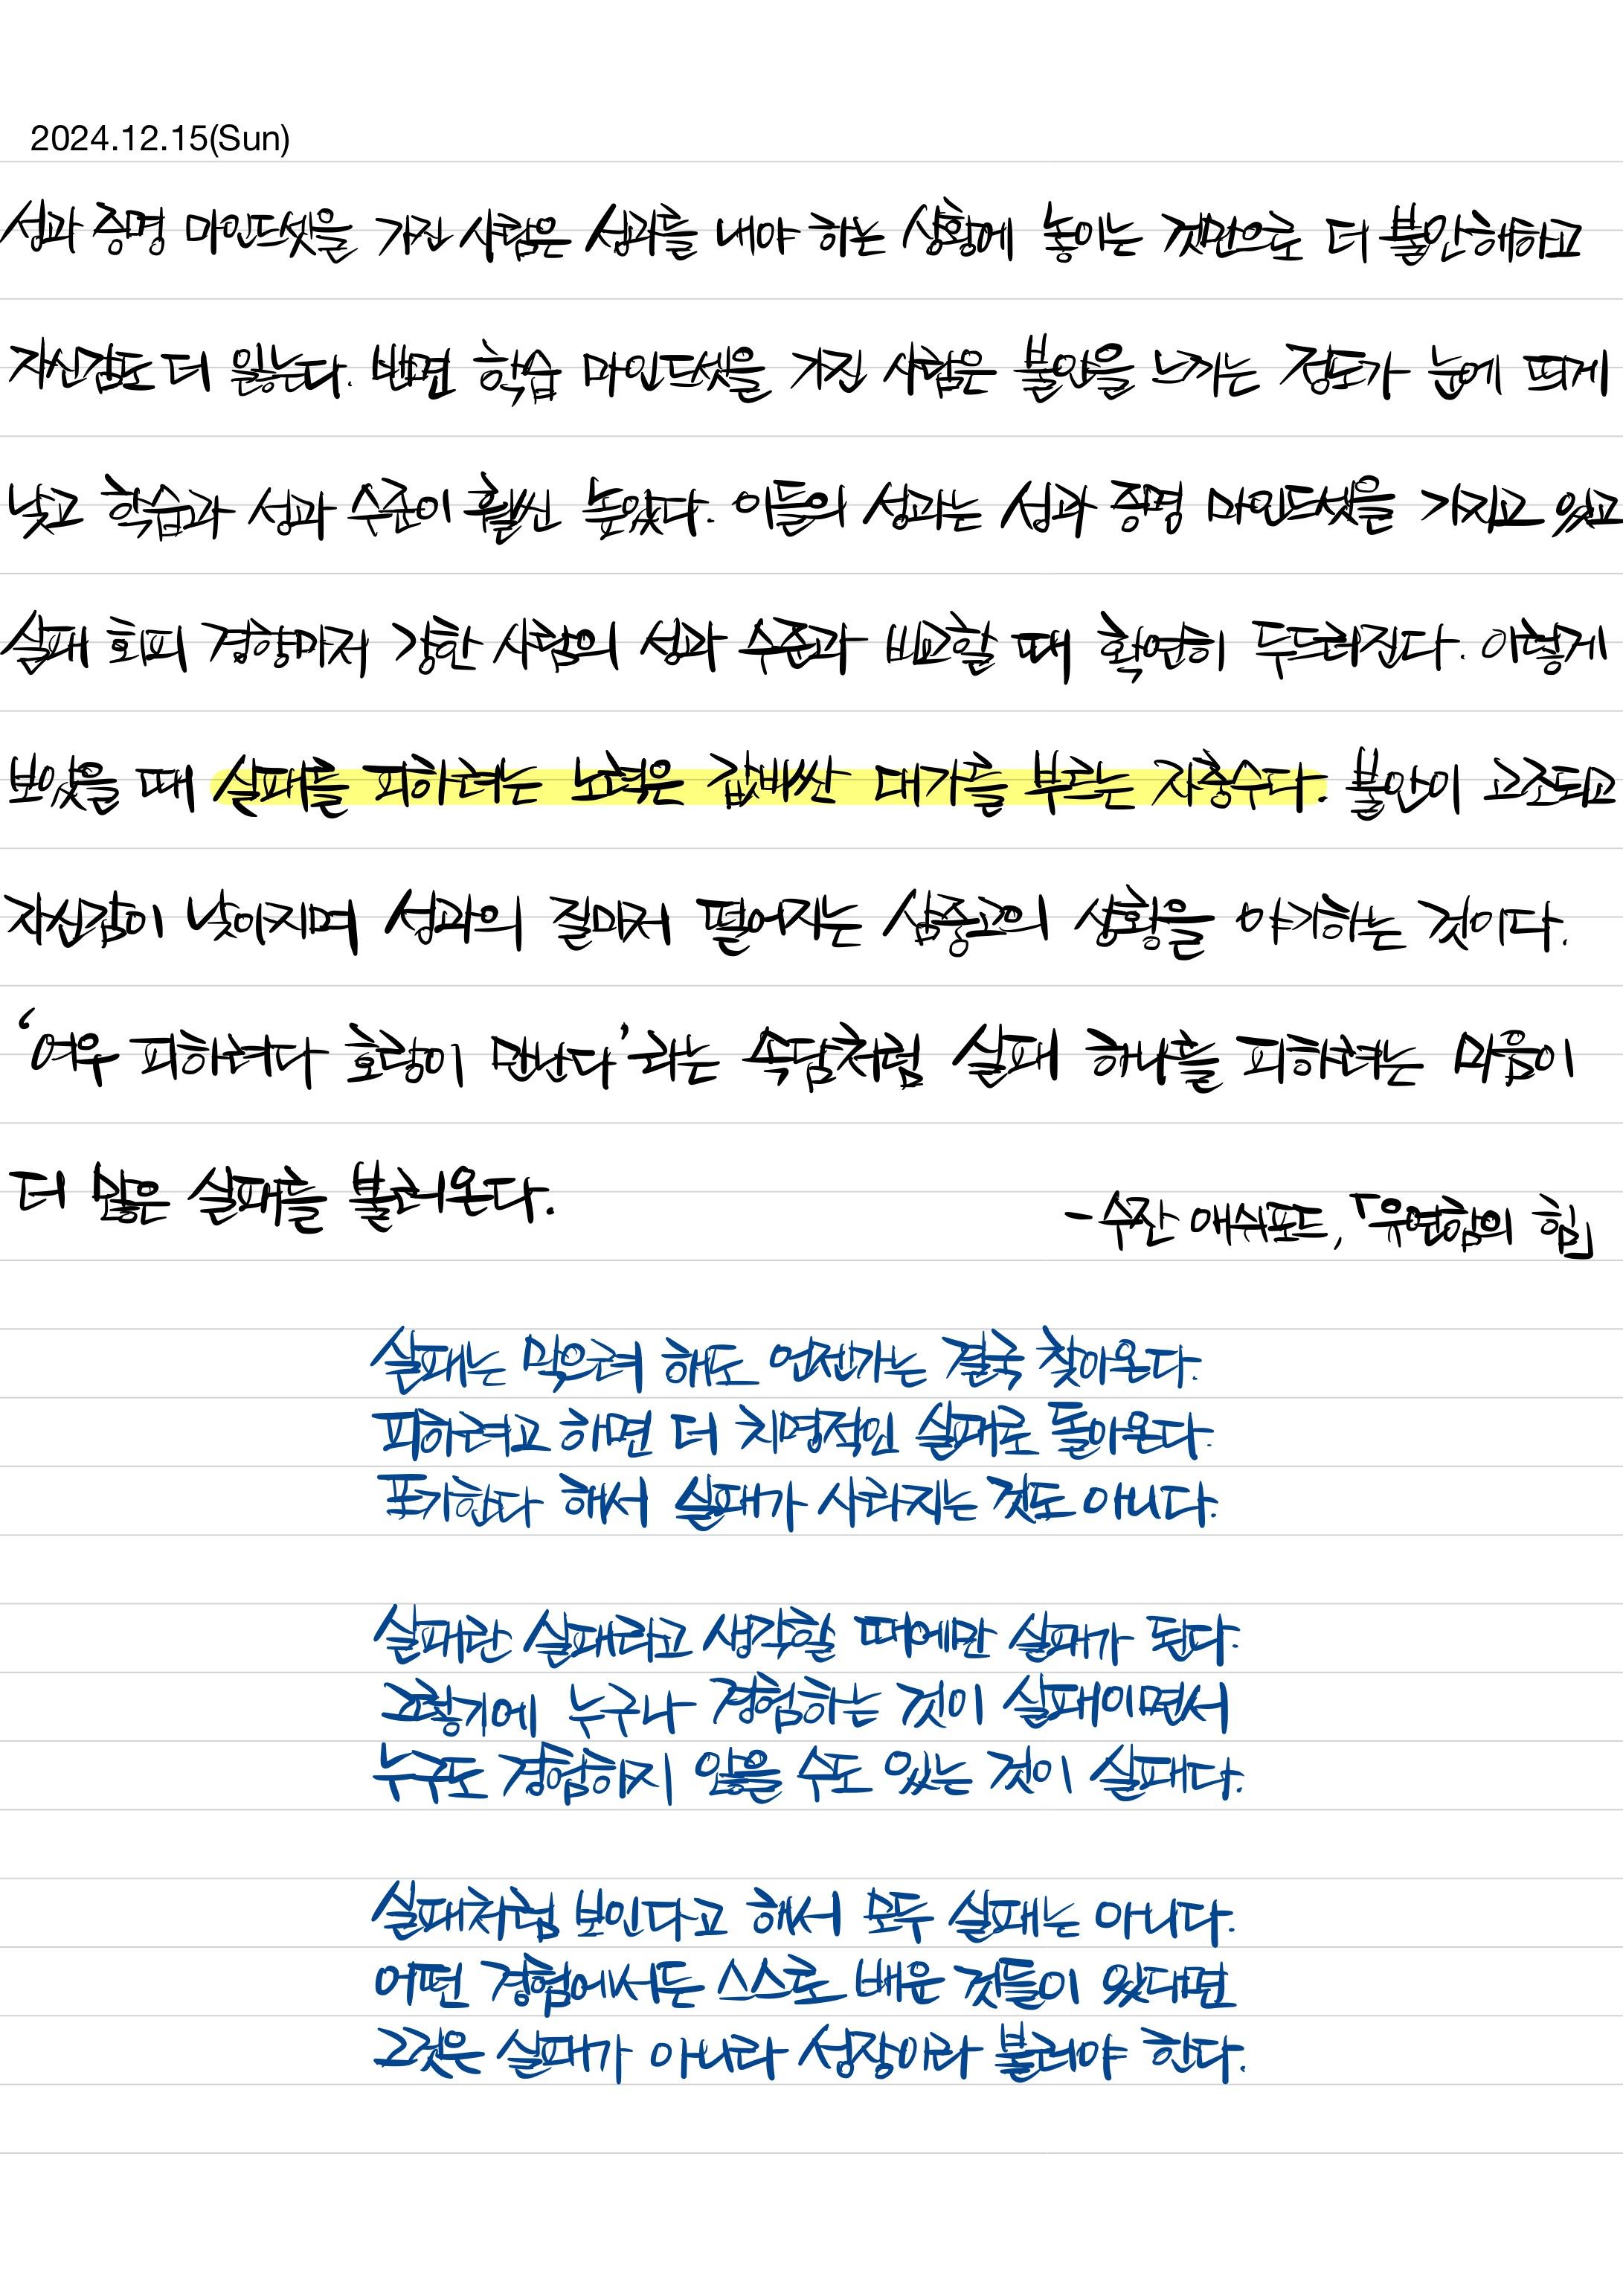 2024.12.15(Sun)
성과 증명 마인드셋을 가진 사람은 성과를 내야 하는 상황에 놓이는 것만으로 더 불안해하고
자신감도 더 잃는다. 반면 학습 마인드셋을 가진 사람은 불안을 느끼는 정도가 눈에 띄게
낮고 학습과 성과 수준이 훨씬 높았다. 이들의 성과는 성과 증명 마인드셋을 가지고 있고
실패 회피 경향마저 강한 사람의 성과 수준과 비교할 때 확연히 두드러진다. 이렇게
보았을 때 실패를 피하려는 노력은 값비싼 대가를 부르는 자충수다. 불안이 고조되고
자신감이 낮아지며 성과의 질마저 떨어지는 삼중고의 상황을 야기하는 것이다.
‘여우 피하려다 호랑이 만난다’라는 속담처럼 실패 하나를 피하려는 마음이
더 많은 실패를 불러온다.
- 수잔 애쉬포드, 「유연함의 힘」
실패는 막으려 해도 언젠가는 결국 찾아온다.
피하려고 하면 더 치명적인 실패로 돌아온다.
포기한다 해서 실패가 사라지는 것도 아니다.
실패란 실패라고 생각할 때에만 실패가 된다.
그렇기에 누구나 경험하는 것이 실패이면서
누구도 경험하지 않을 수도 있는 것이 실패다.
실패처럼 보인다고 해서 모두 실패는 아니다.
어떤 경험에서든 스스로 배운 것들이 있다면
그것은 실패가 아니라 성장이라 불러야 한다.